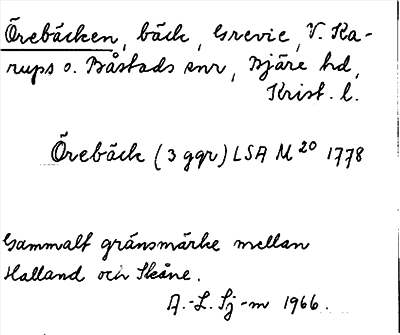 Örebäcken, bäck, Grevie, V. Ka-
rups o. Båstads snr, Bjäre hd,
Krist. l.
Örebäck (3 ggr) LSA M 20 1778
Gammalt gränsmärke mellan
Halland och Skåne.
A.-L. Sj-m 1966.